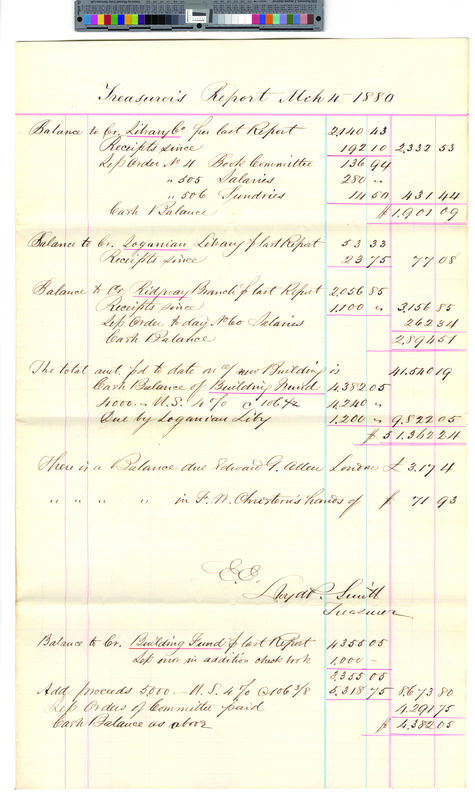 Treasurer's Report Mch 4 1880
Balance to Cr. Library Co per last Report 2,140 43
Receipts since 192 10 2,332 53
Less Order No 4 Book Committee 136 94
" 505 Salaries 280 "
" 506 Sundries 14 50 431 44
Cash Balance $ 1,901 09
Balance to Cr. Loganian Library p last Report 53 33
Receipts since 23 75 77 08
Balance to Cr Ridgway Branch p last Report 2,056 85
Receipts since 1,100 " 3,156 85
Less Order to day No 60 Salaries 262 34
Cash Balance 2,894 51
The total amt. p'd to date on a/c new Building is 41,540 19
Cash Balance of Building Fund 4,382 05
4000 – U.S. 4 % @ 106 4,240 "
Due by Loganian Liby 1,200 " 9,822 05
$ 51,362 24
There is a Balance due Edward G. Allen London £ 3.17 4
" " " " in F. W. Christern's hands of $ 71 93
E.E.
Lloyd P. Smith
Treasurer
Balance to Cr. Building Fund p last Report 4355 05
Less error in addition check book 1,000 –
3,355 05
Add proceeds 5,000 – U.S. 4 % @ 106 3/8 5,318 75 8,673 80
Less Orders of Committee paid 4,291 75
Cash Balance as above $ 4,382 05